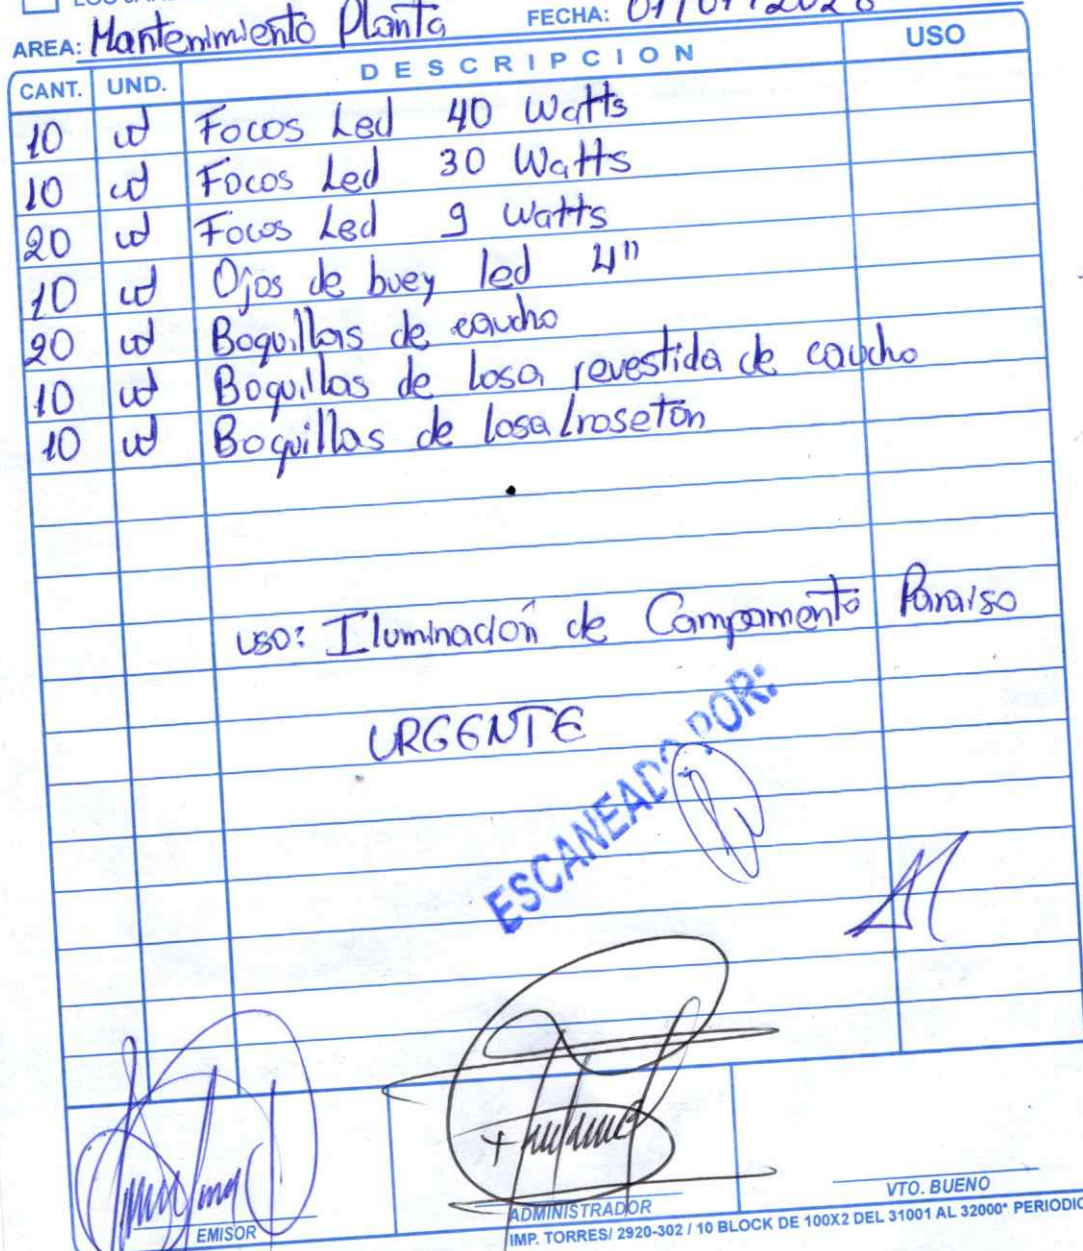 AREA: Mantenimiento Planta FECHA:
CANT. UND. DESCRIPCION USO
10 ud Focos Led 40 Watts
10 ud Focos Led 30 Watts
20 ud Focos Led 9 Watts
10 ud Ojos de buey led 4"
20 ud Boquillas de caucho
10 ud Boquillas de Losa revestida de caucho
10 ud Boquillas de losa/roseton
uso: Iluminación de Campamento Paraiso
URGENTE
ESCANEADO POR:
EMISOR ADMINISTRADOR VTO. BUENO
IMP. TORRES/ 2920-302 / 10 BLOCK DE 100X2 DEL 31001 AL 32000* PERIODIC